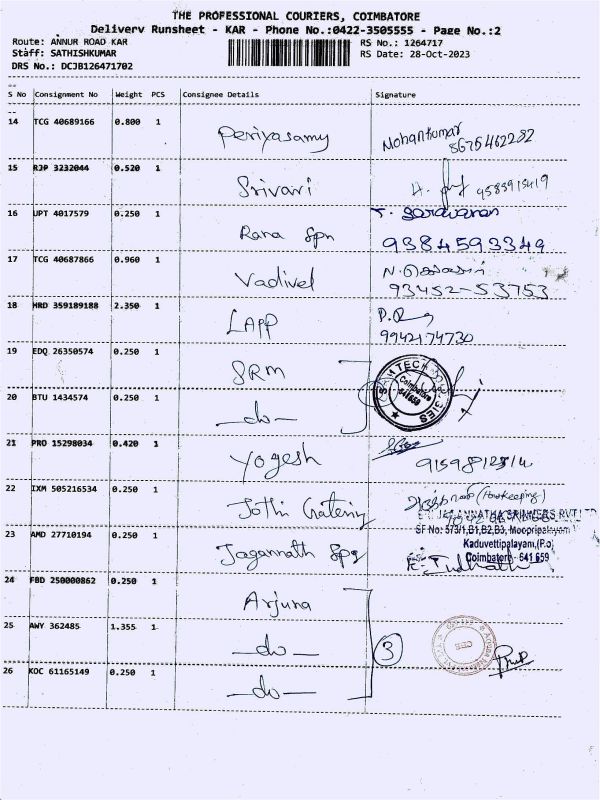 THE PROFESSIONAL COURIERS, COIMBATORE
Delivery Runsheet - KAR - Phone No.:0422-3505555 - Page No.:2
Route: ANNUR ROAD KAR RS No.: 1264717
Staff: SATHISHKUMAR RS Date: 28-Oct-2023
DRS No.: DCJB126471702
S No Consignment No Weight PCS Consignee Details Signature
14 TCG 40689166 0.800 1 Periyasamy Mohankumar
8675462282
15 RJP 3232044 0.520 1 Srivari
16 UPT 4017579 0.250 1 Rana Spn T. Saravanan
9384593349
17 TCG 40687866 0.960 1 Vadivel
93452-53753
18 HRD 359189188 2.350 1 LAPP
9942174730
19 EDQ 26350574 0.250 1 SRM
Coimbatore
641 659
20 BTU 1434574 0.250 1 -do-
21 PRO 15298034 0.420 1 Yogesh
22 IXM 505216534 0.250 1 Jothi Catering (Housekeeping)
23 AMD 27710194 0.250 1 Jagannath Spg
SF No: 573/1,B1,B2,B3, Moopripalayam
Kaduvettipalayam,(P.o)
Coimbatore - 641 659
24 FBD 250000862 0.250 1 Arjuna
25 AWY 362485 1.355 1 -do- 3
26 KOC 61165149 0.250 1 -do-